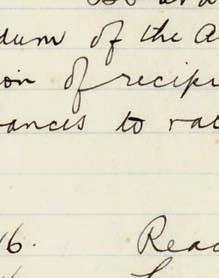 dum of the A
ion of recipr
ances to rat
16. Read